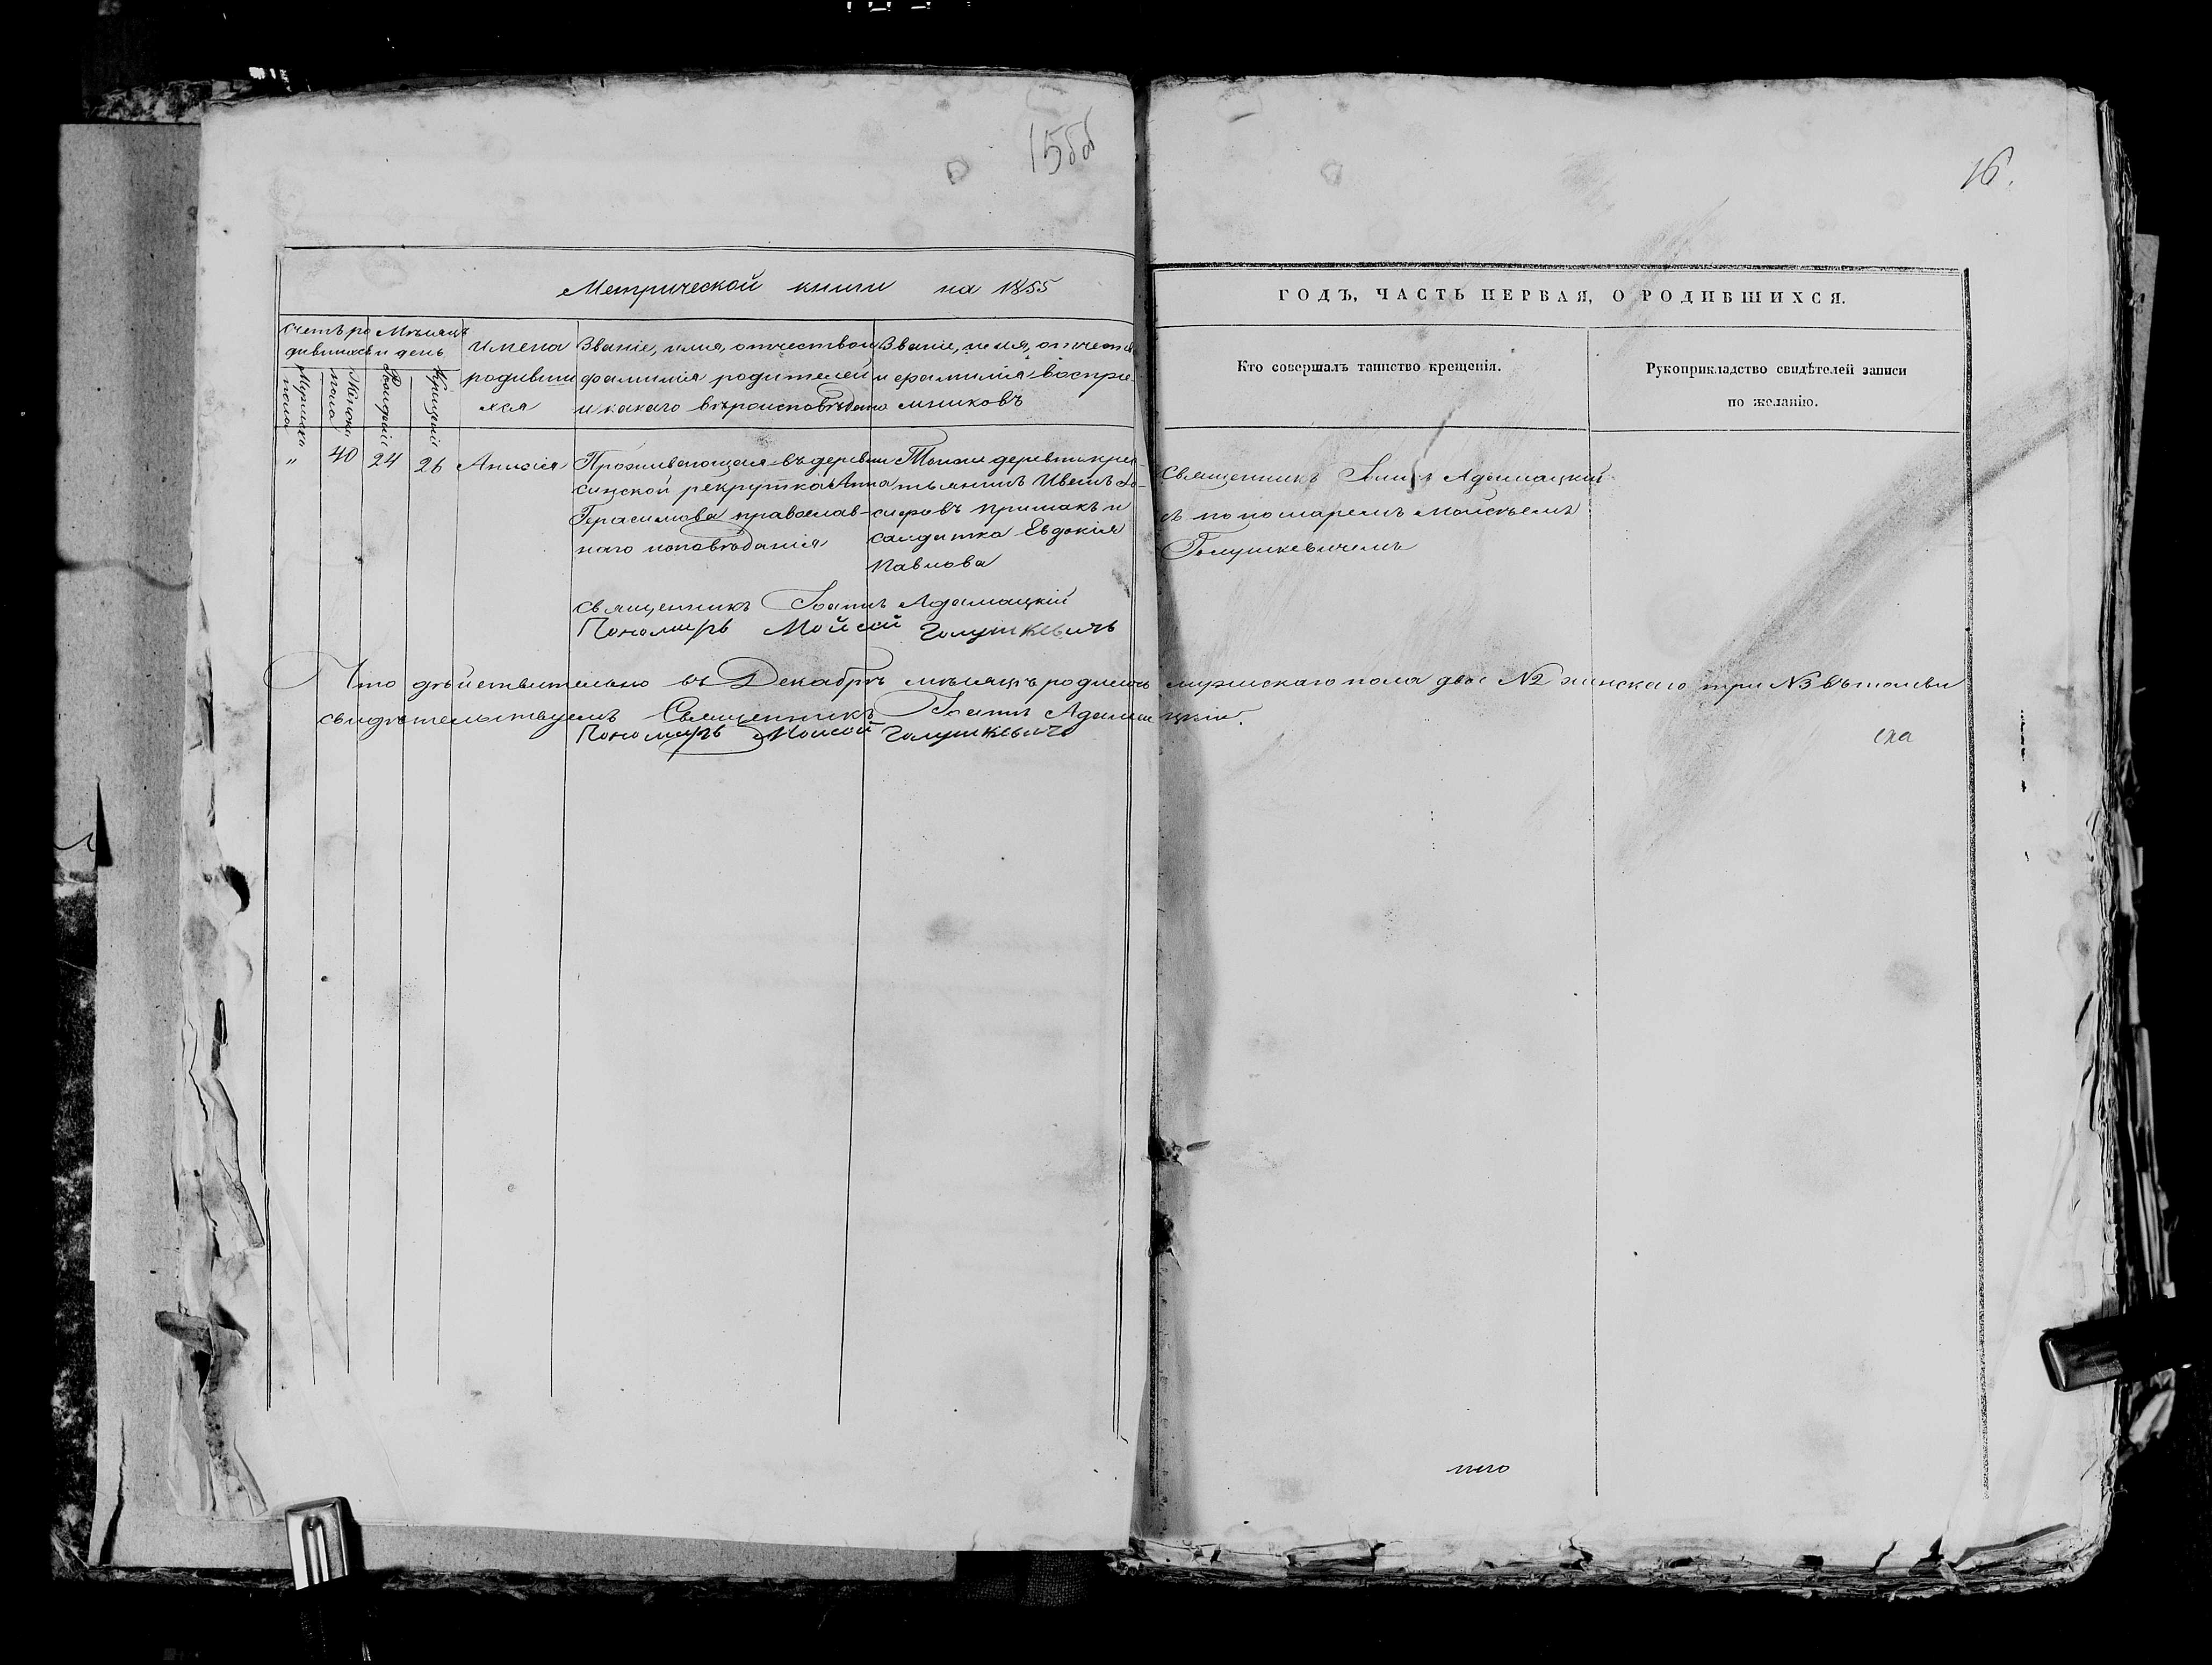 15об
16.
Метрической книги на 1855
ГОДЪ, ЧАСТЬ ПЕРВАЯ, О РОДИВШИХСЯ.
Счетъ ро
дившихся
Мѣсяцъ
и день
Мужеска
пола
Женска
пола
Рожденія
Крещенія
Имена
родивши
хся
Званіе, имя, отчество и
фамилія родителей
и какаго вѣроисповѣдан
Званіе, имя, отчеств
и фамилія воспрі-
емниковъ
Кто совершалъ таинство крещенія.
Рукоприкладство свидѣтелей записи
по желанію.
" 40 24 26 Анисія
Проживающая въ деревни
рекрутка Анна
Герасимова православ-
наго исповѣданія
Тойже деревни крес-
тьянинъ Иванъ Іо-
сифовъ примакъ и
солдатка Евдокія
Павлова
Священникъ Іоаннъ Адамацкій
съ пономаремъ Моисѣемъ
Голушкевичемъ
Священникъ Іоаннъ Адамацкій
Пономарь Мойсей Голушкевичъ
Что дѣйствительно въ Декабрѣ мѣсяцѣ родилось мужескаго пола двое №2 женскаго три №3 въ томъ
свидѣтельствуемъ Священникъ Іоаннъ Адамацкій.
Пономарь Моисей Голушкевичъ